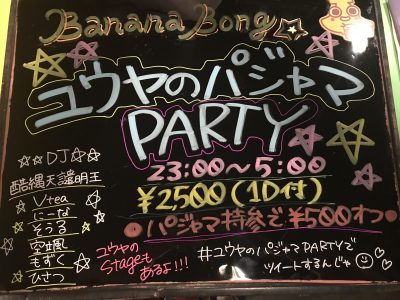 Banana Bong
ユウヤのパジャマ
PARTY
☆☆DJ☆☆
Vtea
にーな
そうる
空虱
もずく
ひさつ
23:00〜5:00
¥2500(1D付)
●パジャマ持参で¥500オフ●
ユウヤの
Stageも
あるよ!!!
#ユウヤのパジャマPARTYで
ツイートするんじゃ